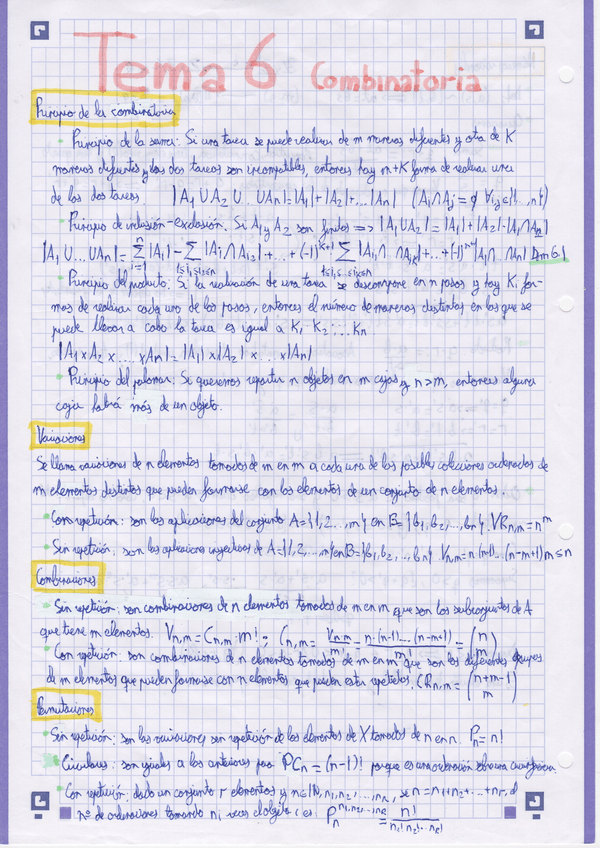 Tema 6 Combinatoria
Principio de la combinatoria
• Principio de la suma: Si una tarea se puede realizar de m maneras diferentes y otra de K
maneras diferentes y las dos tareas son incompatibles, entonces hay m+K forma de realizar una
de las dos tareas. |A₁ ∪ A₂ ∪ .. ∪ An| = |A₁| + |A₂| + ... |An| (Ai ∩ Aj = ∅ ∀i,j ∈ {1,...,n})
• Principio de inclusión-exclusión. Si A₁ y A₂ son finitos => |A₁ ∪ A₂| = |A₁| + |A₂| - |A₁ ∩ A₂|
|A₁ ∪ ... ∪ An| = Σ|Ai| - Σ|Ai₁ ∩ Ai₂| + ... + (-1)ᴷ⁺¹ Σ |Ai₁ ∩ ∩ Aiₖ| + ... + (-1)ⁿ⁺¹ |A₁ ∩ .. ∩ An| Dm 6.1
• Principio del producto: Si la realización de una tarea se descompone en n pasos y hay Ki for-
mas de realizar cada uno de los pasos, entonces el número de maneras distintas en las que se
puede llevar a cabo la tarea es igual a K₁ · K₂ ··· Kn
|A₁ x A₂ x ... x An| = |A₁| x |A₂| x ... x |An|
• Principio del palomar: Si queremos repartir n objetos en m cajas y n > m, entonces alguna
caja habrá más de un objeto.
Variaciones
Se llama variaciones de n elementos tomados de m en m a cada una de las posibles colecciones ordenadas de
m elementos distintos que pueden formarse con los elementos de un conjunto de n elementos.
• Con repetición: son las aplicaciones del conjunto A={1,2,...,m} en B={b₁,b₂,...,bn}. VRn,m = nᵐ
• Sin repetición: son las aplicaciones inyectivas de A={1,2,...,m} en B={b₁,b₂,...,bn}. Vn,m = n·(n-1)...(n-m+1) m≤n
Combinaciones
• Sin repetición: son combinaciones de n elementos tomados de m en m que son los subconjuntos de A
que tiene m elementos. Vn,m = Cn,m · m! ; Cn,m = Vn,m/m! = n·(n-1)...(n-m+1)/m! = (n m)
• Con repetición: son combinaciones de n elementos tomados de m en m que son los diferentes grupos
de m elementos que pueden formarse con n elementos que pueden estar repetidos. CRn,m = (n+m-1 m)
Permutaciones
• Sin repetición: son las variaciones sin repetición de los elementos de X tomados de n en n. Pn = n!
• Circulares: son iguales a las anteriores pero PCn = (n-1)! porque es una ordenación sobre una circunferencia
• Con repetición: dado un conjunto r elementos y n ∈ ℕ, n₁, n₂, ..., nr, se n = n₁+n₂+...+nr, el
nº de ordenaciones tomando ni veces el objeto i es Pn^(n₁,n₂,...,nr) = n!/(n₁! n₂!...nr!)